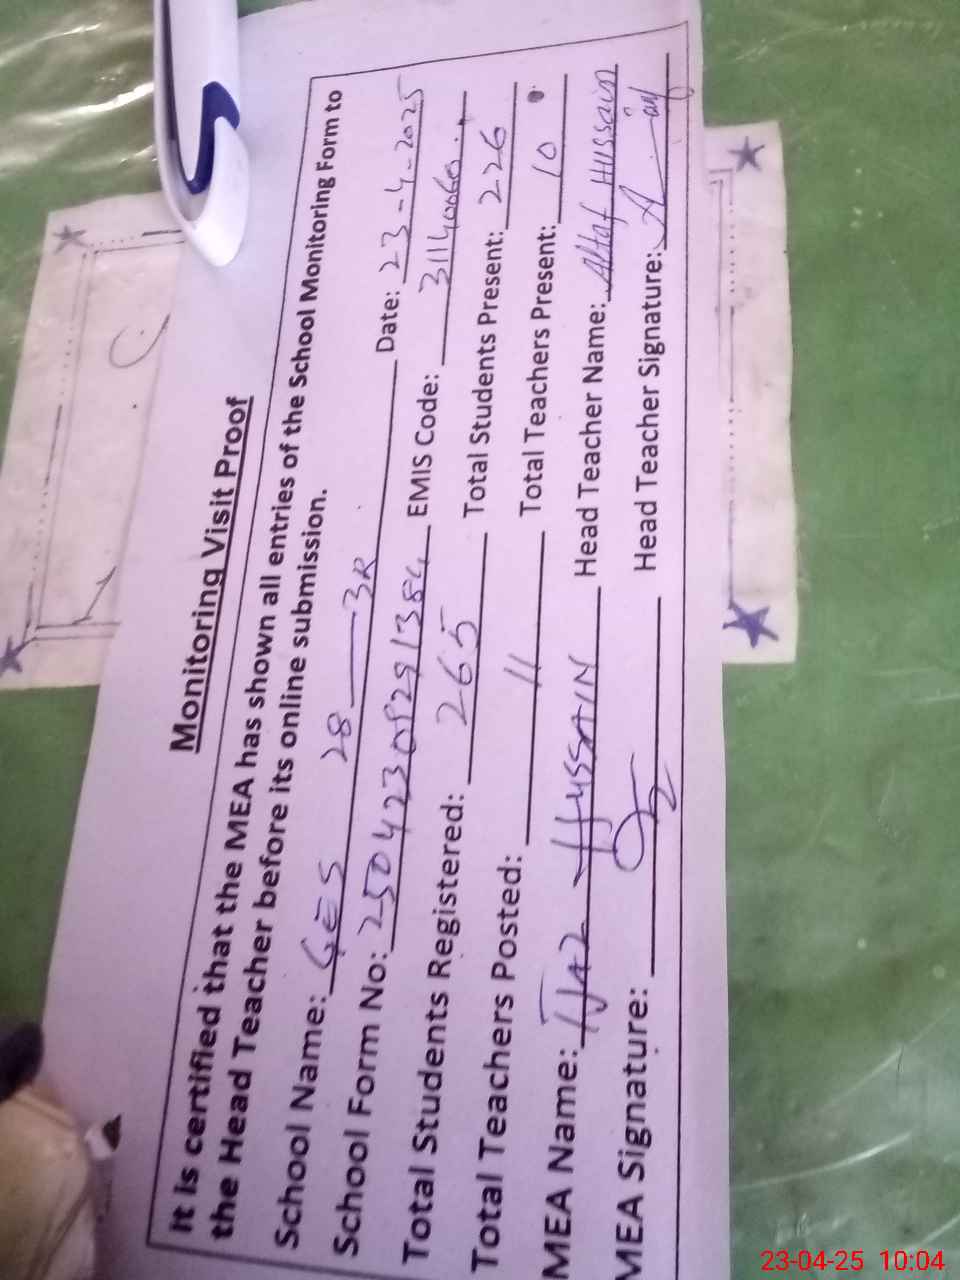 Monitoring Visit Proof
It is certified that the MEA has shown all entries of the School Monitoring Form to
the Head Teacher before its online submission.
School Name: GES 28 3R Date: 23-4-2025
School Form No: 25042308291384 EMIS Code: 31140060
Total Students Registered: 265 Total Students Present: 226
Total Teachers Posted: 11 Total Teachers Present: 10
MEA Name: IJAZ HUSSAIN Head Teacher Name: Altaf Hussain
MEA Signature: Head Teacher Signature:
23-04-25 10:04